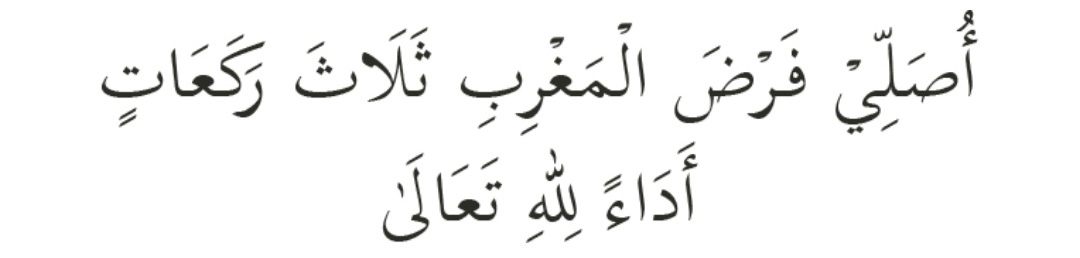 أُصَلِّيْ فَرْضَ الْمَغْرِبِ ثَلَاثَ رَكَعَاتٍ
أَدَاءً لِلّٰهِ تَعَالَىٰ